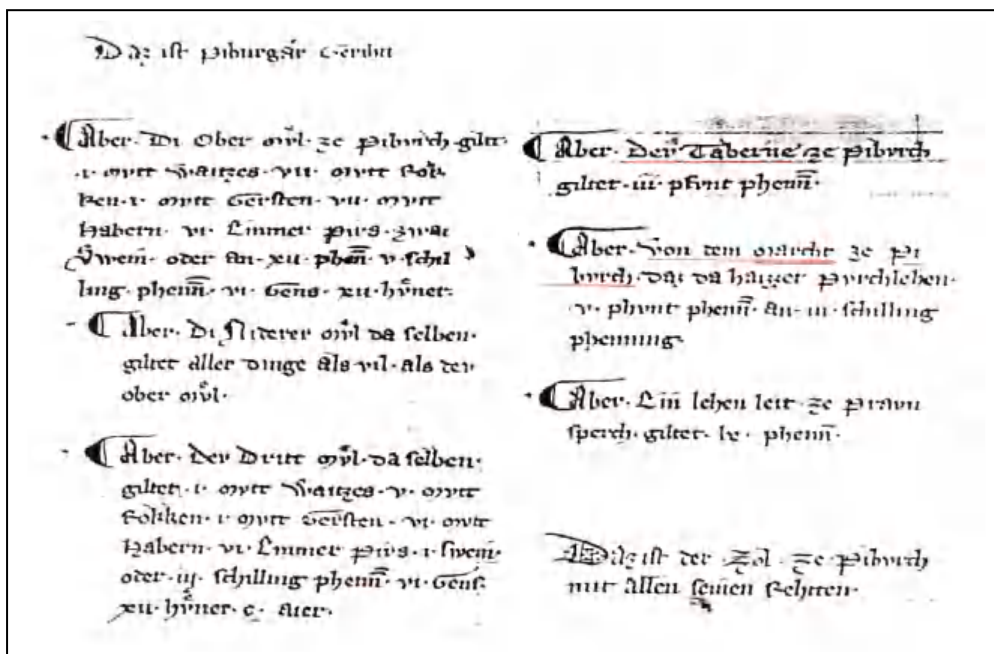 Daz ist Piburgär Gerihtt
Aber. Di Ober mvͤl. ze Pibvrch. giltt.
.i. mvtt Waitzes. vii. mvtt Rok
ken. i. mvtt Gersten. vii. mvtt
Habern. vi. Emmer Pirs. zwai
Swein. oder an. xii. phen̄. v. schil
ling. phenn̄. vi. Gens. xii. hvͤner.
Aber. Di Niderer mvͤl da selben.
giltet aller dinge als vil. als der
ober mvͤl.
Aber. Der Dritt mvͤl. da selben.
giltet. i. mvtt Waitzes. v. mvtt
Rokken. i. mvtt Gersten. vi. mvtt
Habern. vi. Emmer Pirs. i. swein.
oder. iij. schilling phenn̄. vi. Gens.
xii. hvͤner. c. aier.
Aber. Der Taberne ze Pibvrch
giltet. iii. pfvnt phenn̄.
Aber. Von dem marcht ze Pi
bvrch. daz da haizzet Pvrchlehen.
v. phvnt phenn̄. an. iii. schilling
phenning.
Aber. Ein lehen leit. ze Prawn
sperch. giltet. lx. phenn̄.
Daz ist der. Zol. ze Pibvrch
mit allen seinen Rehtten.